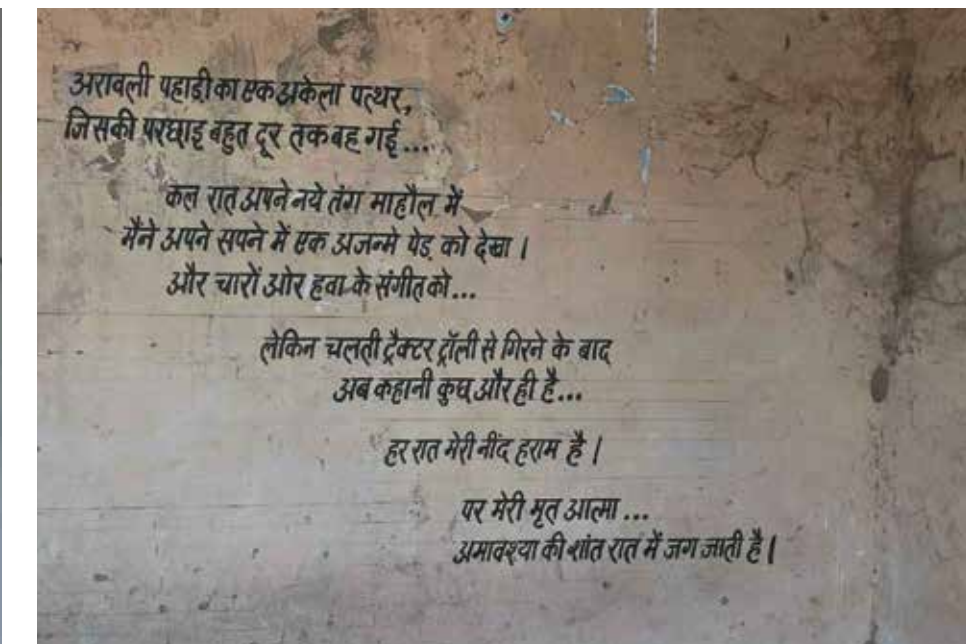 अरावली पहाड़ी का एक अकेला पत्थर,
जिसकी परछाइ बहुत दूर तक बह गई...
कल रात अपने नये तंग माहौल में
मैंने अपने सपने में एक अजन्मे पेड़ को देखा।
और चारों ओर हवा के संगीत को...
लेकिन चलती ट्रैक्टर ट्रॉली से गिरने के बाद
अब कहानी कुछ और ही है...
हर रात मेरी नींद हराम है।
पर मेरी मृत आत्मा...
अमावश्या की शांत रात में जग जाती है।